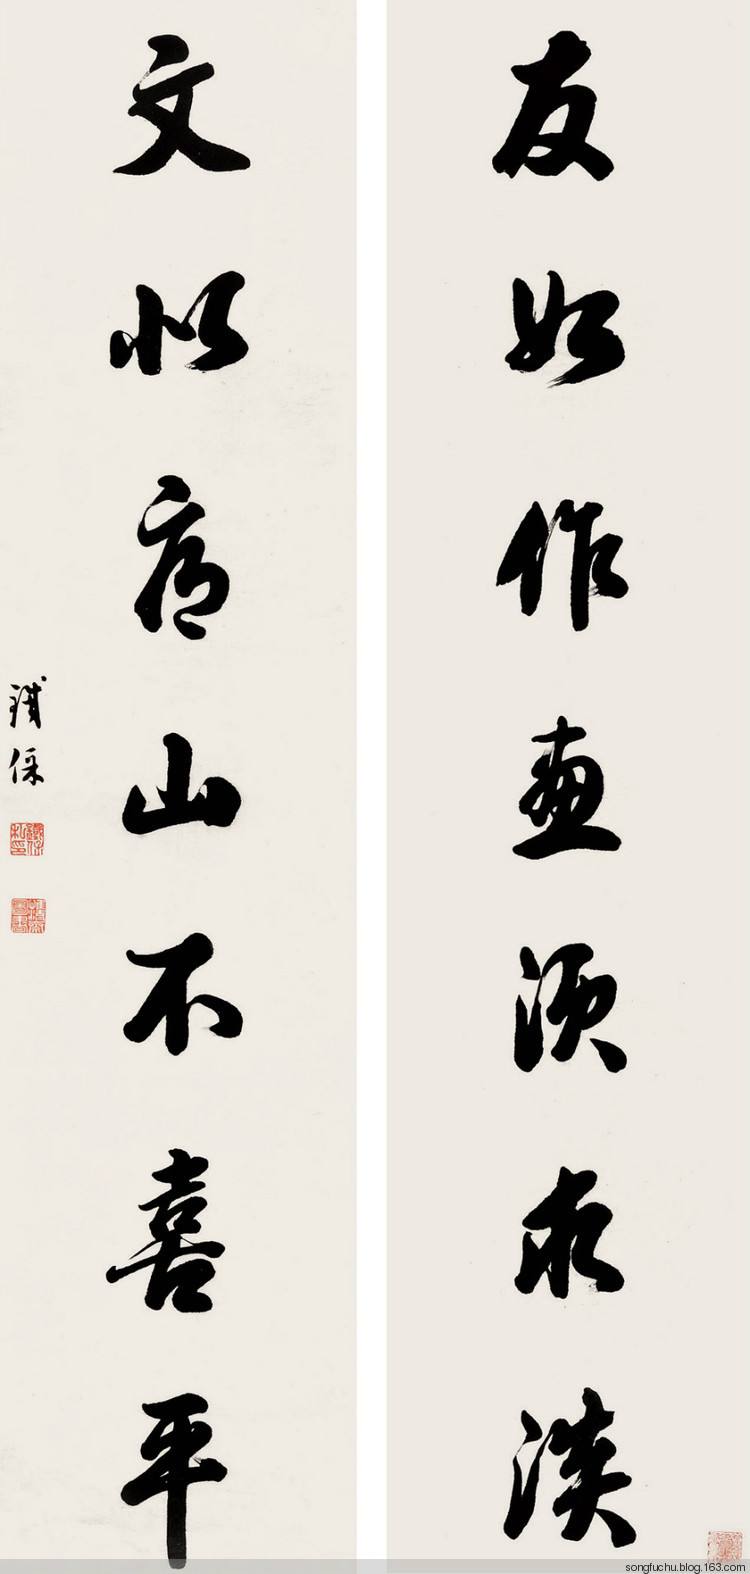 友如作画须求淡
文似看山不喜平
铁保
songfuchu.blog.163.com